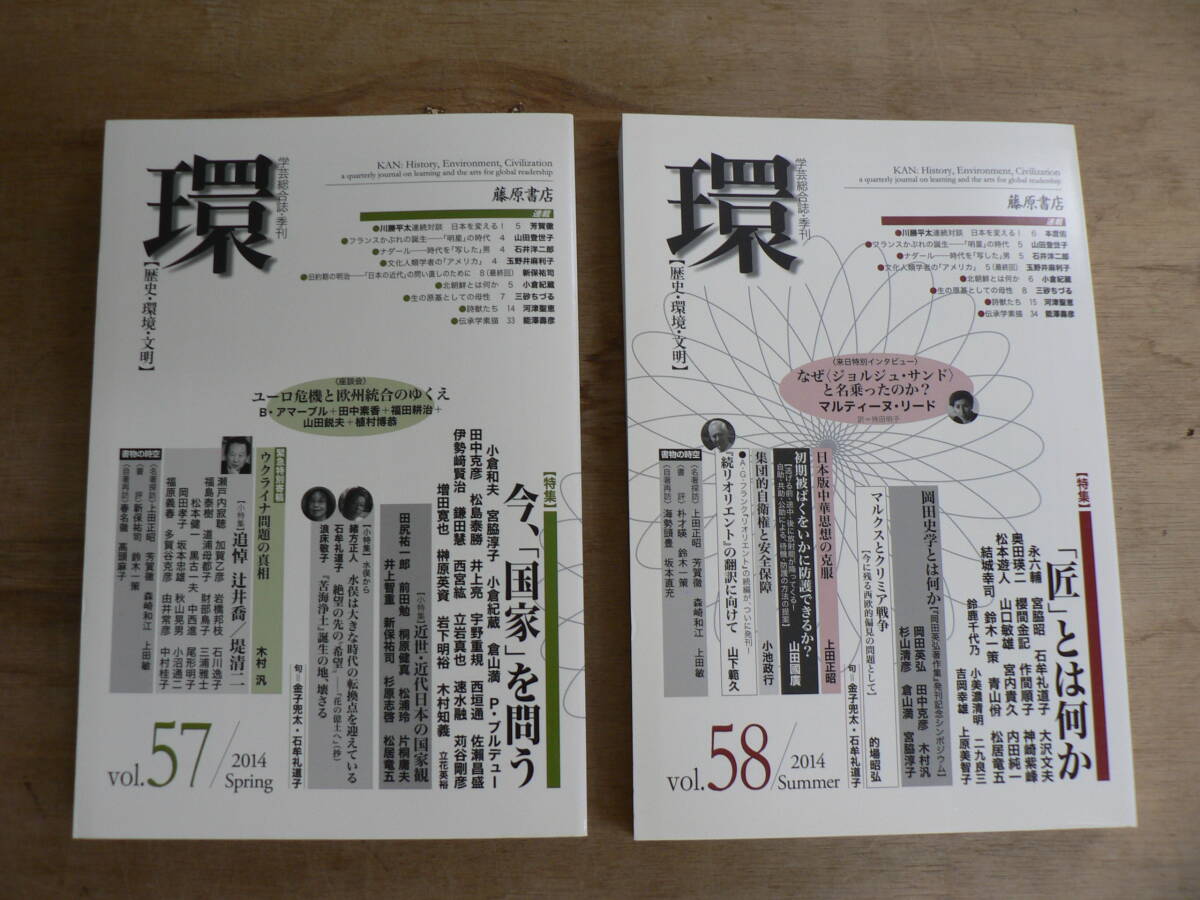 環
学芸総合誌・季刊
【歴史・環境・文明】
KAN: History, Environment, Civilization
a quarterly journal on learning and the arts for global readership
藤原書店
連載
●川勝平太連続対談　日本を変える！　5　芳賀徹
●フランスかぶれの誕生──「明星」の時代　4　山田登世子
●ナダール──時代を「写した」男　4　石井洋二郎
●文化人類学者の「アメリカ」　4　玉野井麻利子
●旧約期の明治──「日本の近代」の問い直しのために　8（最終回）　新保祐司
●北朝鮮とは何か　5　小倉紀蔵
●生の原基としての母性　7　三砂ちづる
●詩獣たち　14　河津聖恵
●伝承学素描　33　能澤壽彦
〈座談会〉
ユーロ危機と欧州統合のゆくえ
B・アマーブル＋田中素香＋福田耕治＋
山田鋭夫＋植村博恭
【特集】
今、「国家」を問う
小倉和夫　宮脇淳子　小倉紀蔵　倉山満　P・ブルデュー
田中克彦　松島泰勝　井上亮　宇野重規　西垣通　佐瀬昌盛
伊勢﨑賢治　鎌田慧　西宮紘　立岩真也　速水融　苅谷剛彦
増田寛也　榊原英資　岩下明裕　木村知義　立花英裕
［小特集］近世・近代日本の国家観
田尻祐一郎　前田勉　桐原健真　松浦玲　片桐庸夫
井上智重　新保祐司　杉原志啓　松居竜五
［小特集］水俣から
緒方正人　水俣は大きな時代の転換点を迎えている
石牟礼道子　絶望の先の“希望”──『花の億土へ』（抄）
浪床敬子　『苦海浄土』誕生の地、壊さる
句＝金子兜太・石牟礼道子
緊急特別寄稿
ウクライナ問題の真相　木村汎
［小特集］追悼　辻井喬／堤清二
瀬戸内寂聴　加賀乙彦　岩橋邦枝　石川逸子
福島泰樹　道浦母都子　財部鳥子　三浦雅士
松本健一　黒古一夫　中西進　尾形明子
岡田孝子　坂本忠雄　秋山晃男　小沼通二
福原義春　多賀谷克彦　由井常彦　中村桂子
書物の時空
〈名著探訪〉上田正昭　芳賀徹　森崎和江　上田敏
〈書　評〉新保祐司　鈴木一策
〈自著再訪〉春名徹　高頭麻子
vol.57／2014
Spring
環
学芸総合誌・季刊
【歴史・環境・文明】
KAN: History, Environment, Civilization
a quarterly journal on learning and the arts for global readership
藤原書店
連載
●川勝平太連続対談　日本を変える！　6　本庶佑
●フランスかぶれの誕生──「明星」の時代　5　山田登世子
●ナダール──時代を「写した」男　5　石井洋二郎
●文化人類学者の「アメリカ」　5（最終回）　玉野井麻利子
●北朝鮮とは何か　6　小倉紀蔵
●生の原基としての母性　8　三砂ちづる
●詩獣たち　15　河津聖恵
●伝承学素描　34　能澤壽彦
〈来日特別インタビュー〉
なぜ〈ジョルジュ・サンド〉
と名乗ったのか？
マルティーヌ・リード
訳＝持田明子
【特集】
「匠」とは何か
永六輔　宮脇昭　石牟礼道子　大沢文夫
奥田瑛二　櫻間金記　作間順子　神崎紫峰
松本遊人　山口敏雄　宮内貴久　内田純一
結城幸司　鈴木一策　青山悦　松居竜五
鈴鹿千代乃　小美濃清明　二九良三
吉岡幸雄　上原美智子
岡田史学とは何か『岡田英弘著作集』発刊記念シンポジウム
岡田英弘　田中克彦　木村汎
杉山清彦　倉山満　宮脇淳子
マルクスとクリミア戦争
［今に残る西欧的偏見の問題として］　的場昭弘
句＝金子兜太・石牟礼道子
日本版中華思想の克服　上田正昭
初期被ばくをいかに防護できるか？　山田國廣
【逃げる前・途中・後に放射能が降ってくる！
自助・共助・公助による、待機・防護の方法の提案】
集団的自衛権と安全保障　小池政行
●A・G・フランク『リオリエント』の続編が、ついに発刊！
『続リオリエント』の翻訳に向けて　山下範久
書物の時空
〈名著探訪〉上田正昭　芳賀徹　森崎和江　上田敏
〈書　評〉朴才暎　鈴木一策
〈自著再訪〉海勢頭豊　坂本直充
vol.58／2014
Summer